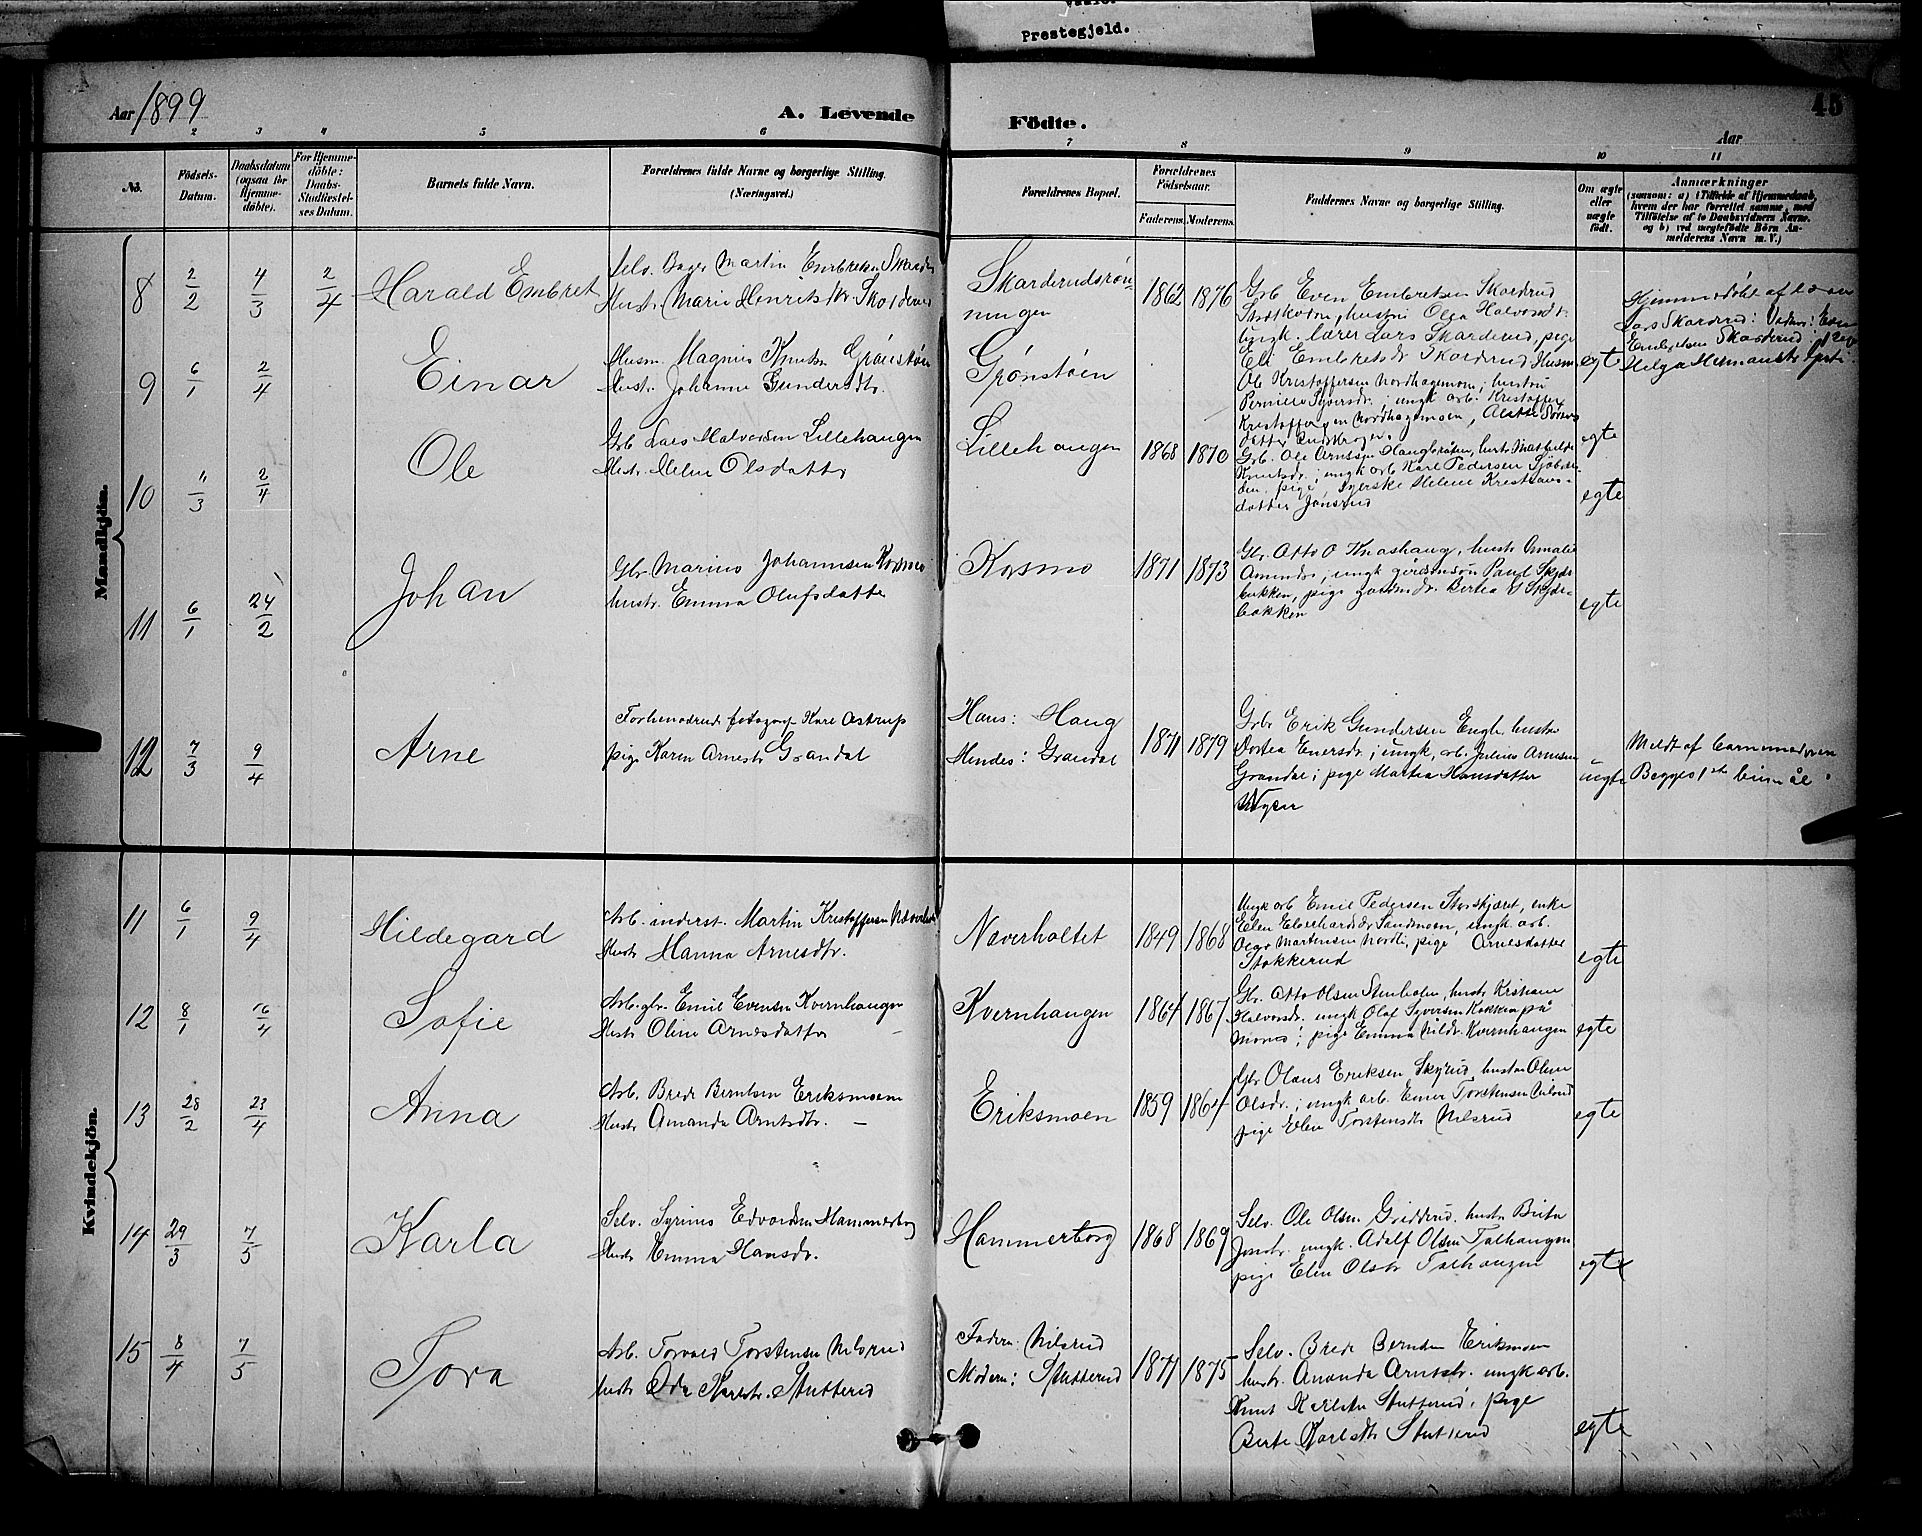 Prestegjeld.
Aar 1899
A. Levende
Födte.
45
Aar
1 2 3 4 5 6 7 8 9 10 11
No.
Födsels-
Datum.
Daabsdatum
(ogsaa for
Hjemme-
döbte).
For Hjemme-
döbte:
Daabs-
Stadfæstel-
ses Datum.
Barnets fulde Navn.
Forældrenes fulde Navne og borgerlige Stilling.
(Næringsvei.)
Forældrenes Bopæl.
Forældrenes
Födselsaar.
Faderens. Moderens.
Faddernes Navne og borgerlige Stilling.
Om ægte
eller
uægte
födt.
Anmærkninger
(saasom: a) i Tilfælde af Hjemmedaab,
hvem der har forrettet samme, med
Tilföielse af to Daabsvidners Navne,
og b) ved uægtefödte Börn An-
melderens Navn m. V.)
Mandkjön.
8 2/2 4/3 2/4 Harald Embret
Selv. Bager Martin Embretsen
Hustr. Marie Henriks
Skarderudsrøn-
ningen
1862 1876
Grb Even Embretsen Skarderud
hustru Olga Halvorsdtr
ungk. lærer Lars Skarderud, pige
Eli Embretsdr Skarderud
Hjemmedøbt af lærer
Lars Skarderud: Even
Embretsen Skarderud
Helga
egte
9 6/1 2/4 Einar
Husm. Magnus Knutsen Grønstøen
Hustr. Johanne Gundersdtr.
Grønstøen
Husm
Ole Kristoffersen Nordhagemoen, hustru
Pernille Syversdr. ; ungk arb. Kristoffer
Kristoffersen Nordhagemoen,
egte
10 11/3 2/4 Ole
Grb Lars Halvorsen Lillehaugen
Hustr. Helene Olsdatter
Lillehaugen
1868 1870
Grb. Ole Arnesen Haugbråten, hustr. Mathilde
Knutsdr. ; ungk arb Karl Pedersen
pige, Syerske Helene Kristians-
datter Jonsrud
egte
11 6/1 24/2 Johan
Gbr Marius Johannesen Kosmo
hustr. Emma Olufsdatter
Kosmo
1871 1873
Gbr. Otto O Knashaug, hustr Amalie
Amundsdr, ungk Paul Skjær-
bakken, pige Bertea Skjær-
bakken
egte
12 7/3 9/4 Arne
fotograf Karl Astrup
pige Karen Arnesdtr Grandal
Hans: Haug
Hendes: Grandal
1871 1879
Grbr Erik Gundersen Engh. hustru
Dortea Enersdr. ; ungk. arb. Julius Arnesen
Grandal ; pige Martea Hansdatter
uegte
Meldt af barnemoderen
Begges 1ste leiermål
Kvindekjön.
11 6/1 9/4 Hildegard
Arb. inderst. Martin Kristoffersen
Hustr Hanna Arnesdtr.
Næverholtet
1849 1868
Ungk arb Emil Pedersen Storskjæret, enke
Elen Eberhardsdr Sandmoen, ungk arb.
Martensen pige Arnesdatter
Stokkerud
egte
12 8/1 16/4 Sofie
Arb. gbr. Emil Evensen Kvernhaugen
Hustr Oline Arnesdatter
Kvernhaugen
1864 1867
Gbr. Otto Olsen Stenholen, hustr Kristiane
Halvorsdr. ungk Olaf Syversen Kokken på
; pige Emma Nilsdr. Kvernhaugen
egte
13 28/2 23/4 Anna
Arb. Brede Berntsen Eriksmoen
Hustr Amanda Arntsdtr.
Eriksmoen
1859 1864
Gbr Olaus Eriksen Skyrud, hustru Oline
Olsdr. ; ungk arb. Einer Torstensen Nilsrud
pige Elen Torstensdtr Nilsrud
egte
14 29/3 7/5 Karla
Selv. Syrinus Edvardsen Hammerborg
Hustr Emma Hansdr.
Hammerborg
1868 1869
Selv. Ole Olsen Gridderud. hustr Berte
Jonsdr. ungk. Adolf Olsen Talhaugen
pige Elen Olsdtr Talhaugen
egte
15 8/4 7/5 Tora
Arb. Torvald Torstensen Nilsrud
hustr Oda Karlsdtr. Stutterud
Faderen: Nilsrud
Moderen: Stutterud
1871 1875
Selv. Brede Berntsen Eriksmoen
hustr. Amanda Arntsdtr. ungk arb.
Knut Karlsen Stutterud, pige
Berte Karlsdtr Stutterud
egte